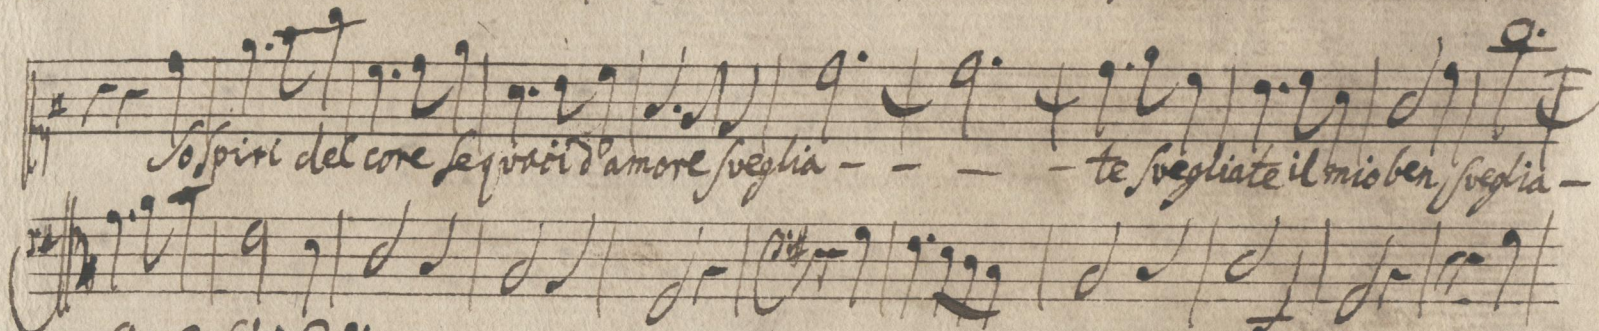 Sospiri del core sequaci d'amore sveglia - - - - te svegliate il mio ben sveglia -